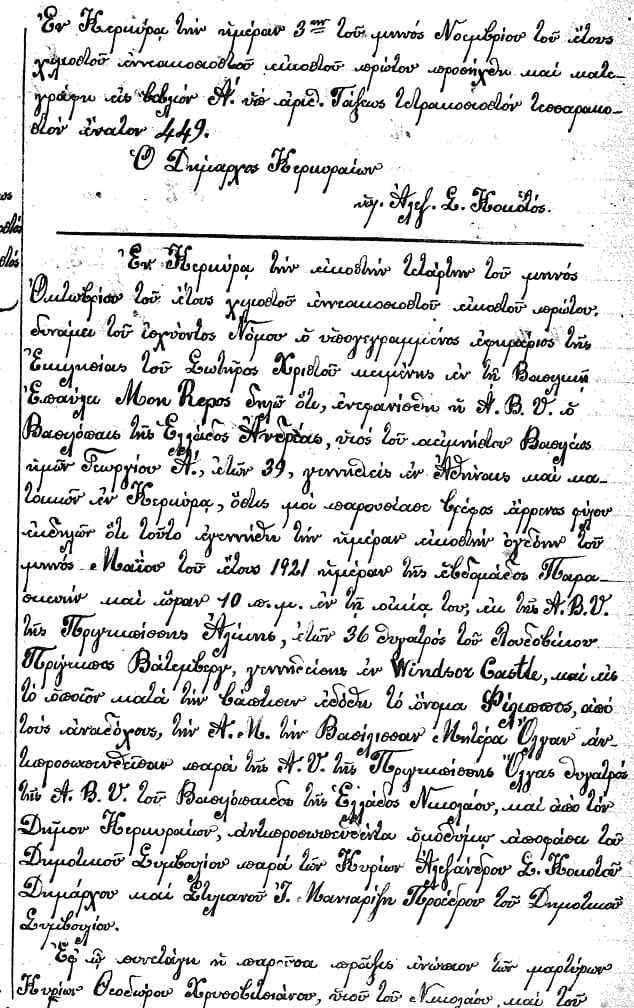 Ἐν Κερκύρᾳ τὴν ἡμέραν 3ην τοῦ μηνός Νοεμβρίου τοῦ ἔτους
χιλιοστοῦ ἐννεακοσιοστοῦ εἰκοστοῦ πρώτου προσήχθη καὶ κατε-
γράφη εἰς βιβλίον Α΄. ὑπ' ἀριθ. Τάξεως τετρακοσιοστόν τεσσαρακο-
στόν ἔνατον 449.
Ὁ Δήμαρχος Κερκυραίων
ὑπ. Ἀλεξ. Σ. Κοκοτός.
Ἐν Κερκύρᾳ τὴν εἰκοστὴν τετάρτην τοῦ μηνός
Ὀκτωβρίου τοῦ ἔτους χιλιοστοῦ ἐννεακοσιοστοῦ εἰκοστοῦ πρώτου,
δυνάμει τοῦ ἰσχύοντος Νόμου ὁ ὑπογεγραμμένος ἐφημέριος τῆς
Ἐκκλησίας τοῦ Σωτῆρος Χριστοῦ κειμένης ἐν τῇ Βασιλικῇ
Ἐπαύλει Mon Repos δηλῶ ὅτι, ἐνεφανίσθη ἡ Α. Β. Υ. ὁ
Βασιλόπαις τῆς Ἑλλάδος Ἀνδρέας, υἱός τοῦ ἀειμνήστου Βασιλέως
ἡμῶν Γεωργίου Α΄., ἐτῶν 39, γεννηθείς ἐν Ἀθήναις καὶ κα-
τοικῶν ἐν Κερκύρᾳ, ὅστις μοὶ παρουσίασε βρέφος ἄρρενος φύλου
ἐκδηλῶν ὅτι τοῦτο ἐγεννήθη τὴν ἡμέραν εἰκοστὴν ὀγδόην τοῦ
μηνός Μαΐου τοῦ ἔτους 1921 ἡμέραν τῆς ἑβδομάδος Παρα-
σκευήν καὶ ὥραν 10 π. μ. ἐν τῇ οἰκίᾳ του, ἐκ τῆς Α. Β. Υ.
τῆς Πριγκιπίσσης Ἀλίκης, ἐτῶν 36 θυγατρός τοῦ Λουδοβίκου
Πρίγκιπος Βάτεμβεργ, γεννηθείσης ἐν Windsor Castle, καὶ εἰς
τὸ ὁποῖον κατὰ τὴν βάπτισιν ἐδόθη τὸ ὄνομα Φίλιππος, ἀπό
τοὺς ἀναδόχους, τὴν Α. Μ. τὴν Βασίλισσαν Μητέρα Ὄλγαν ἀν-
τιπροσωπευθεῖσαν παρὰ τῆς Α. Υ. τῆς Πριγκιπίσσης Ὄλγας θυγατρός
τῆς Α. Β. Υ. τοῦ Βασιλόπαιδος τῆς Ἑλλάδος Νικολάου, καὶ ἀπὸ τὸν
Δῆμον Κερκυραίων, ἀντιπροσωπευθέντα ὁμοθύμῳ ἀποφάσει τοῦ
Δημοτικοῦ Συμβουλίου παρὰ τῶν Κυρίων Ἀλεξάνδρου Σ. Κοκοτοῦ
Δημάρχου καὶ Στυλιανοῦ Ἰ. Μανιαρίζη Προέδρου τοῦ Δημοτικοῦ
Συμβουλίου.
Ἐφ' ᾧ συνετάγη ἡ παροῦσα πρᾶξις ἐνώπιον τῶν μαρτύρων
Κυρίων Θεοδώρου Χρυσοβιτσιάνου, υἱοῦ τοῦ Νικολάου, καὶ τοῦ